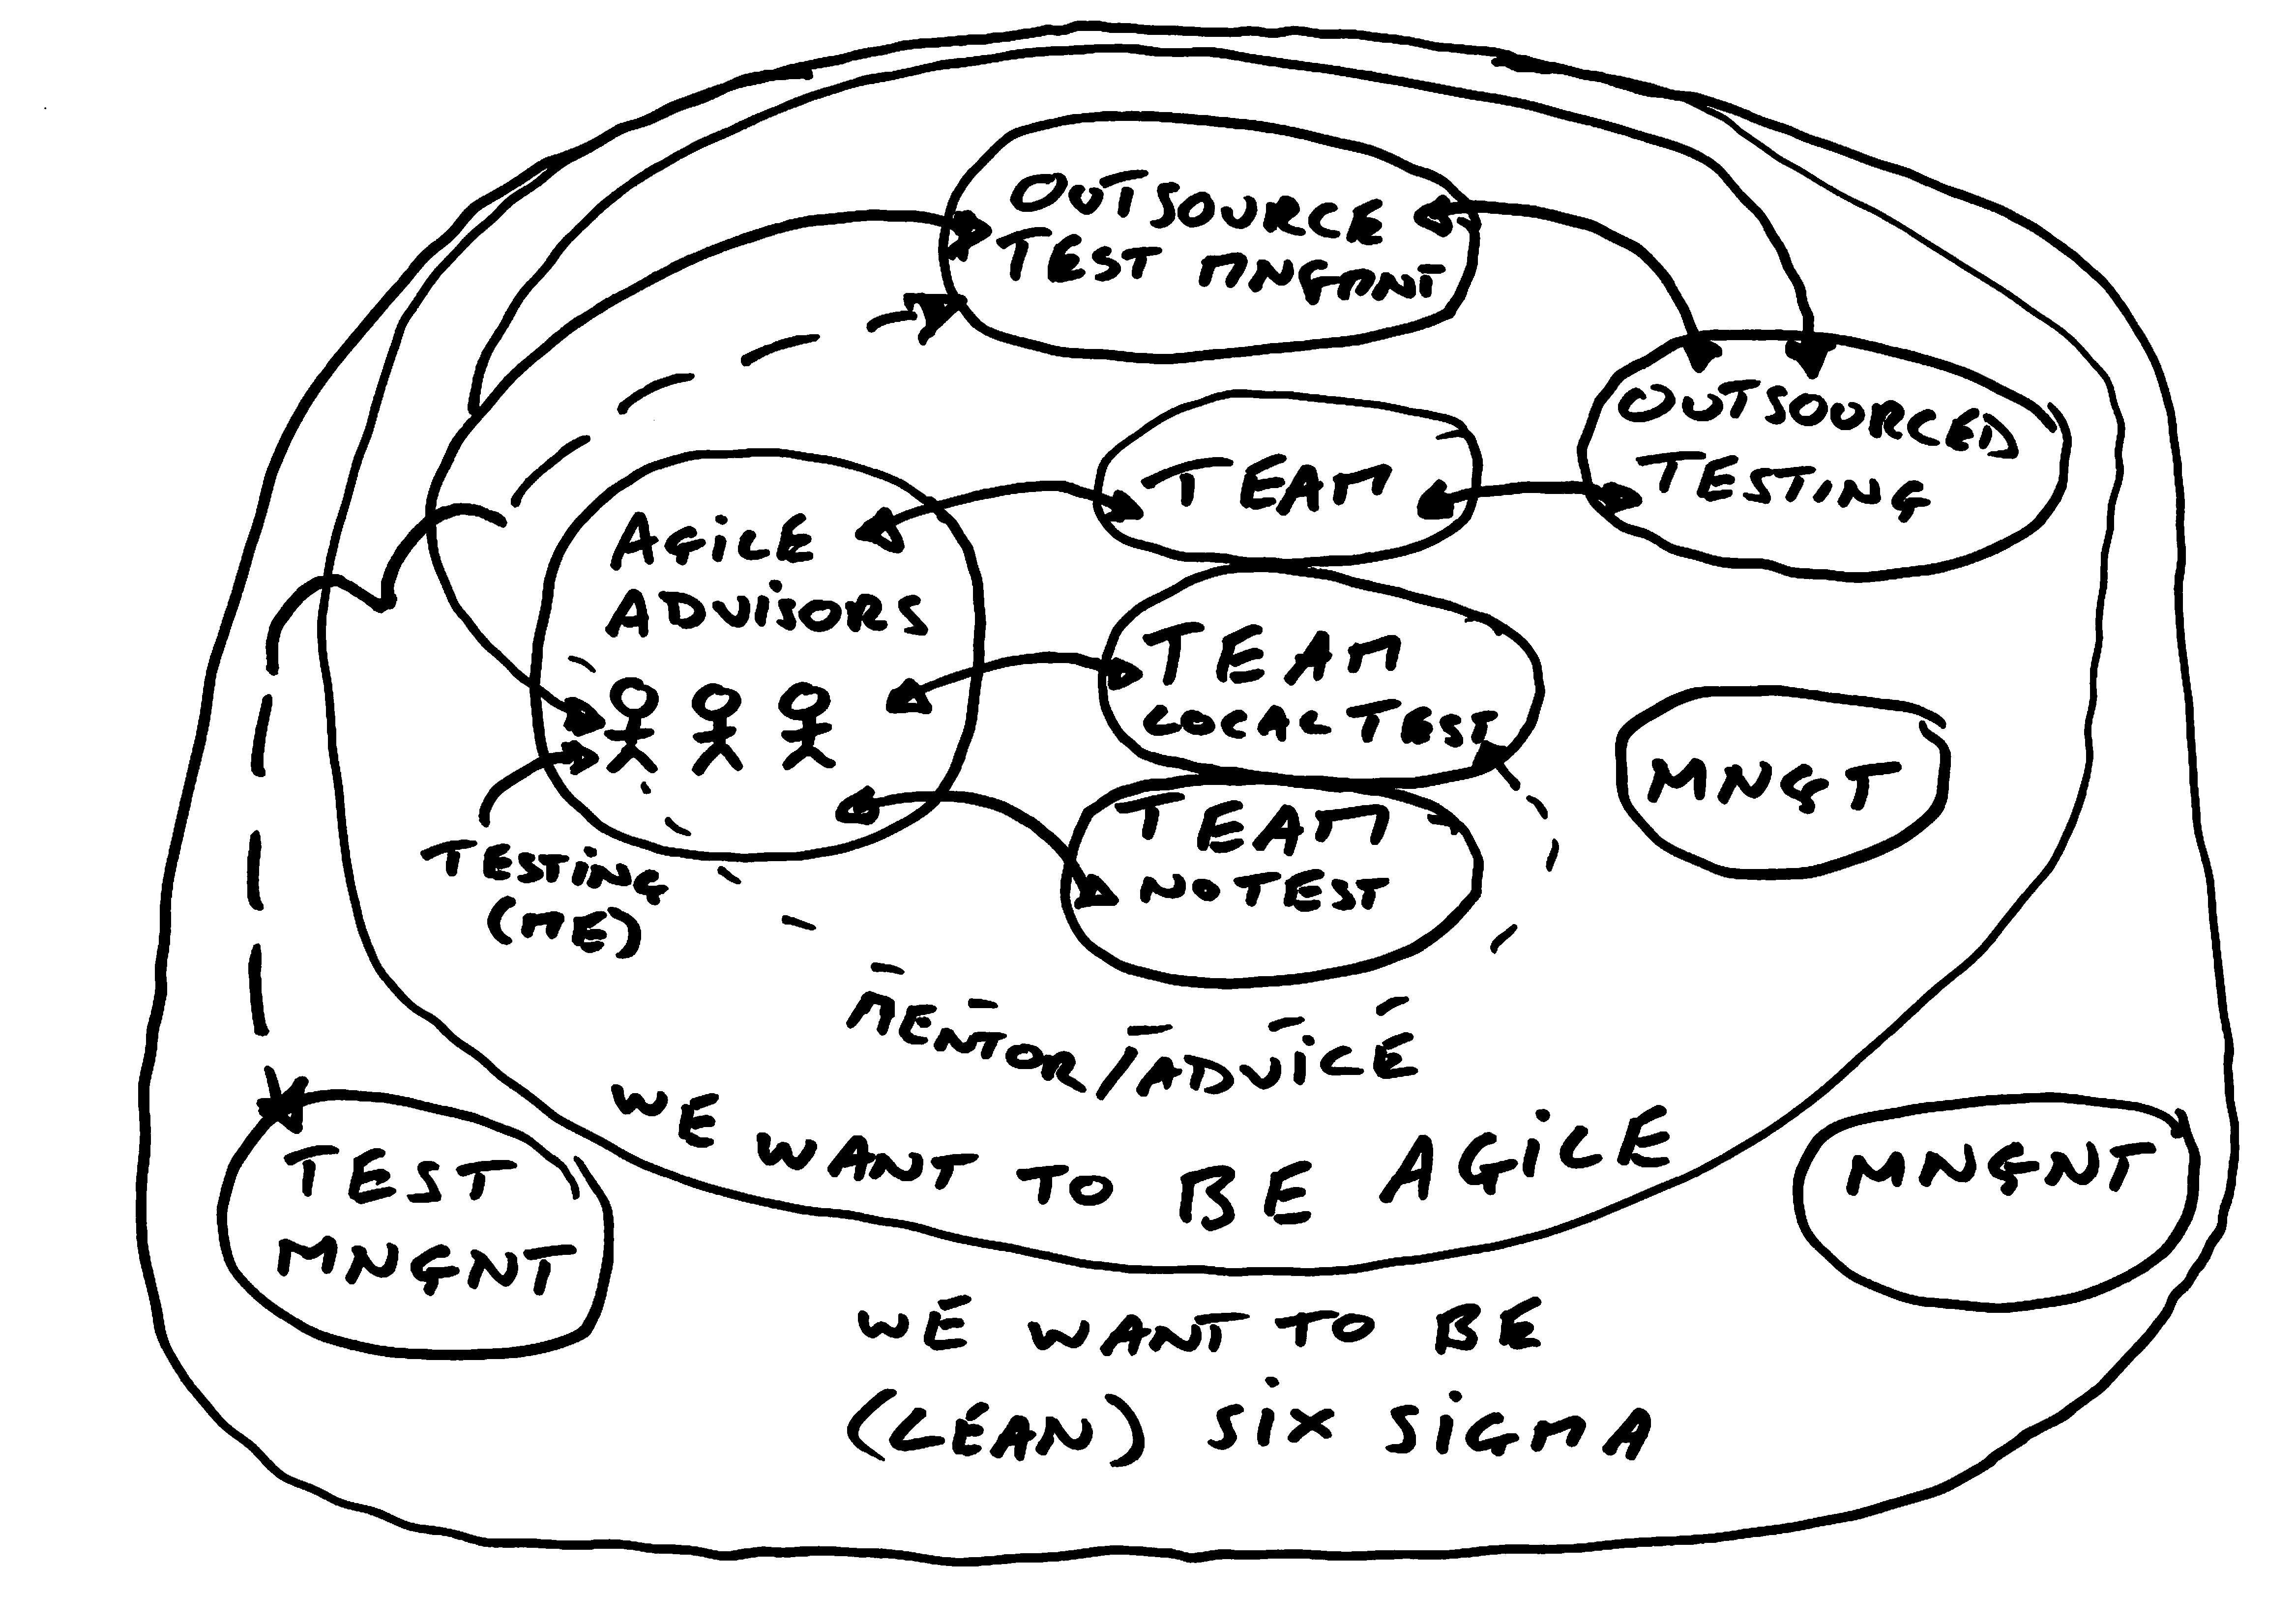 OUTSOURCE
TEST MNGMNT
OUTSOURCED
TESTING
TEAM
AGILE
ADVISORS
TEAM
LOCAL TEST
MNGT
TEAM
NO TEST
TESTING
(ME)
MENTOR/ADVICE
WE WANT TO BE AGILE
TEST
MNGNT
MNGNT
WE WANT TO BE
(LEAN) SIX SIGMA